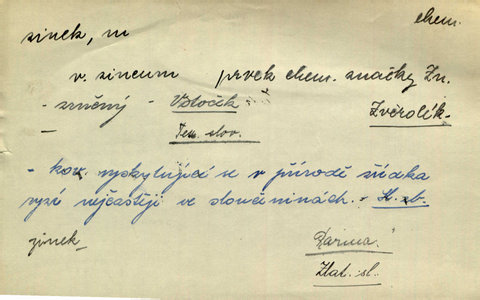 chem.
zinek, m
v. zincum prvek chem. značky Zn.
- zrněný - Votoček Zvěrolék.
- Tem. slov.
- kov vyskytující se v přírodě zřídka
ryzí nejčastěji ve sloučeninách. - Sl. sb.
zinek Farma.
Zlat. sl.